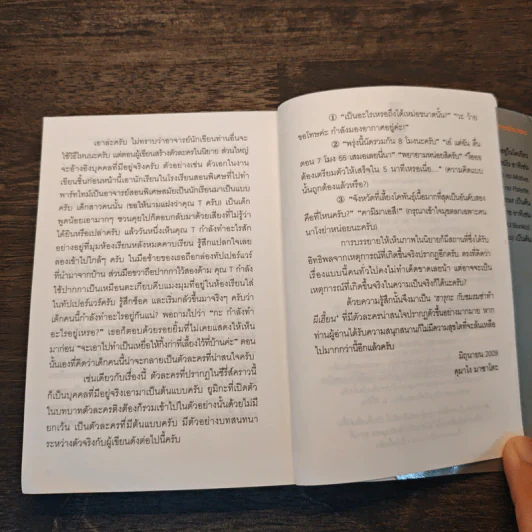 เอาละครับ ไม่ทราบว่าอาจารย์นักเขียนท่านอื่นจะ
ใช้วิธีไหนนะครับ แต่ตอนผู้เขียนสร้างตัวละครในนิยาย ส่วนใหญ่
จะอ้างอิงบุคคลที่มีอยู่จริงครับ ตัวอย่างเช่น ตัวเอกในงาน
เขียนชิ้นก่อนหน้านี้เอานักเรียนในโรงเรียนสอนพิเศษที่ไปทำ
พาร์ทไทม์เป็นอาจารย์สอนพิเศษสมัยเป็นนักเรียนมาเป็นแบบ
ครับ เด็กสาวคนนั้น (ขอให้นามแฝงว่าคุณ T ครับ) เป็นเด็ก
พูดน้อยเอามากๆ ชวนคุยไปก็ตอบกลับมาด้วยเสียงที่ไม่รู้ว่า
ได้ยินหรือเปล่าครับ แล้ววันหนึ่งเห็นคุณ T กำลังทำอะไรสัก
อย่างอยู่ที่มุมห้องเรียนหลังหมดคาบเรียน รู้สึกแปลกใจเลย
ลองเข้าไปใกล้ๆ ครับ ในมือซ้ายของเธอถือกล่องทัปเปอร์แวร์
ที่นำมาจากบ้าน ส่วนมือขวาถือปากกาไว้สองด้าม คุณ T กำลัง
ใช้ปากกาเป็นเหมือนตะเกียบคีบแมงมุมที่อยู่ในห้องเรียนใส่
ในทัปเปอร์แวร์ครับ รู้สึกช็อค และเริ่มกลัวขึ้นมาจริงๆ ครับว่า
เด็กคนนี้กำลังทำอะไรอยู่กันแน่) พอถามไปว่า "กะ กำลังทำ
อะไรอยู่เหรอ?" เธอก็ตอบด้วยรอยยิ้มที่ไม่เคยแสดงให้เห็น
มาก่อน "จะเอาไปทำเป็นเหยื่อให้กิ้งก่าที่เลี้ยงไว้ที่บ้านค่ะ" ตอน
นั้นเองที่คิดว่าเด็กคนนี้น่าจะกลายเป็นตัวละครที่น่าสนใจครับ
เช่นเดียวกับเรื่องนี้ ตัวละครที่ปรากฏในซีรี่ส์คราวนี้
ก็เป็นบุคคลที่มีอยู่จริงเอามาเป็นต้นแบบครับ ยูมิกะที่เปิดตัว
ในบทบาทตัวละครดึงต้องก็รวมเข้าไปในตัวอย่างนั้นด้วยไม่มี
ยกเว้น เป็นตัวละครที่มีต้นแบบครับ มีตัวอย่างบทสนทนา
ระหว่างตัวจริงกับผู้เขียนดังต่อไปนี้ครับ
① "เป็นอะไรเหรอถึงได้เหม่อขนาดนั้น?" "วะ ว้าย
ขอโทษค่ะ กำลังมองอากาศอยู่ค่ะ!"
② "พรุ่งนี้นัดรวมกัน 8 โมงนะครับ" "เอ๋ แต่ฉัน ตื่น
ตอน 7 โมง 55 เสมอเลยนี่นา" "พยายามหน่อยสิครับ" "โอออ
ต้องเตรียมตัวให้เสร็จใน 5 นาทีเหรอเนี่ย..." (ความคิดแบบ
นั้นถูกต้องแล้วหรือ?)
③ "จังหวัดที่เลี้ยงโคพันธุ์เนื้อมากที่สุดเป็นอันดับสอง
คือที่ไหนครับ?" "คามิมาเอสึ!" (กรุณาเข้าใจมุขตลกเฉพาะคน
นาโงย่าหน่อยนะครับ)
การบรรยายให้เห็นภาพในนิยายก็มีสถานที่ซึ่งได้รับ
อิทธิพลจากเหตุการณ์ที่เกิดขึ้นจริงปรากฏอีกครับ ตรงที่คิดว่า
เรื่องแบบนี้คนทั่วไปคงไม่ทำเด็ดขาดเลยน้า แต่อาจจะเป็น
เหตุการณ์ที่เกิดขึ้นจริงในความเป็นจริงก็ได้นะครับ?
ด้วยความรู้สึกนั้นจึงมาเป็น 'ฮารุกะ กับชมรมซ่าท้า
ผีเฮี้ยน' ที่มีตัวละครน่าสนใจปรากฏตัวขึ้นอย่างมากมาย หาก
ท่านผู้อ่านได้รับความสนุกสนานก็ไม่มีความสุขใดที่จะล้นเหลือ
ไปมากกว่านี้อีกแล้วครับ
มิถุนายน 2009
คุมาโง มาซาโตะ